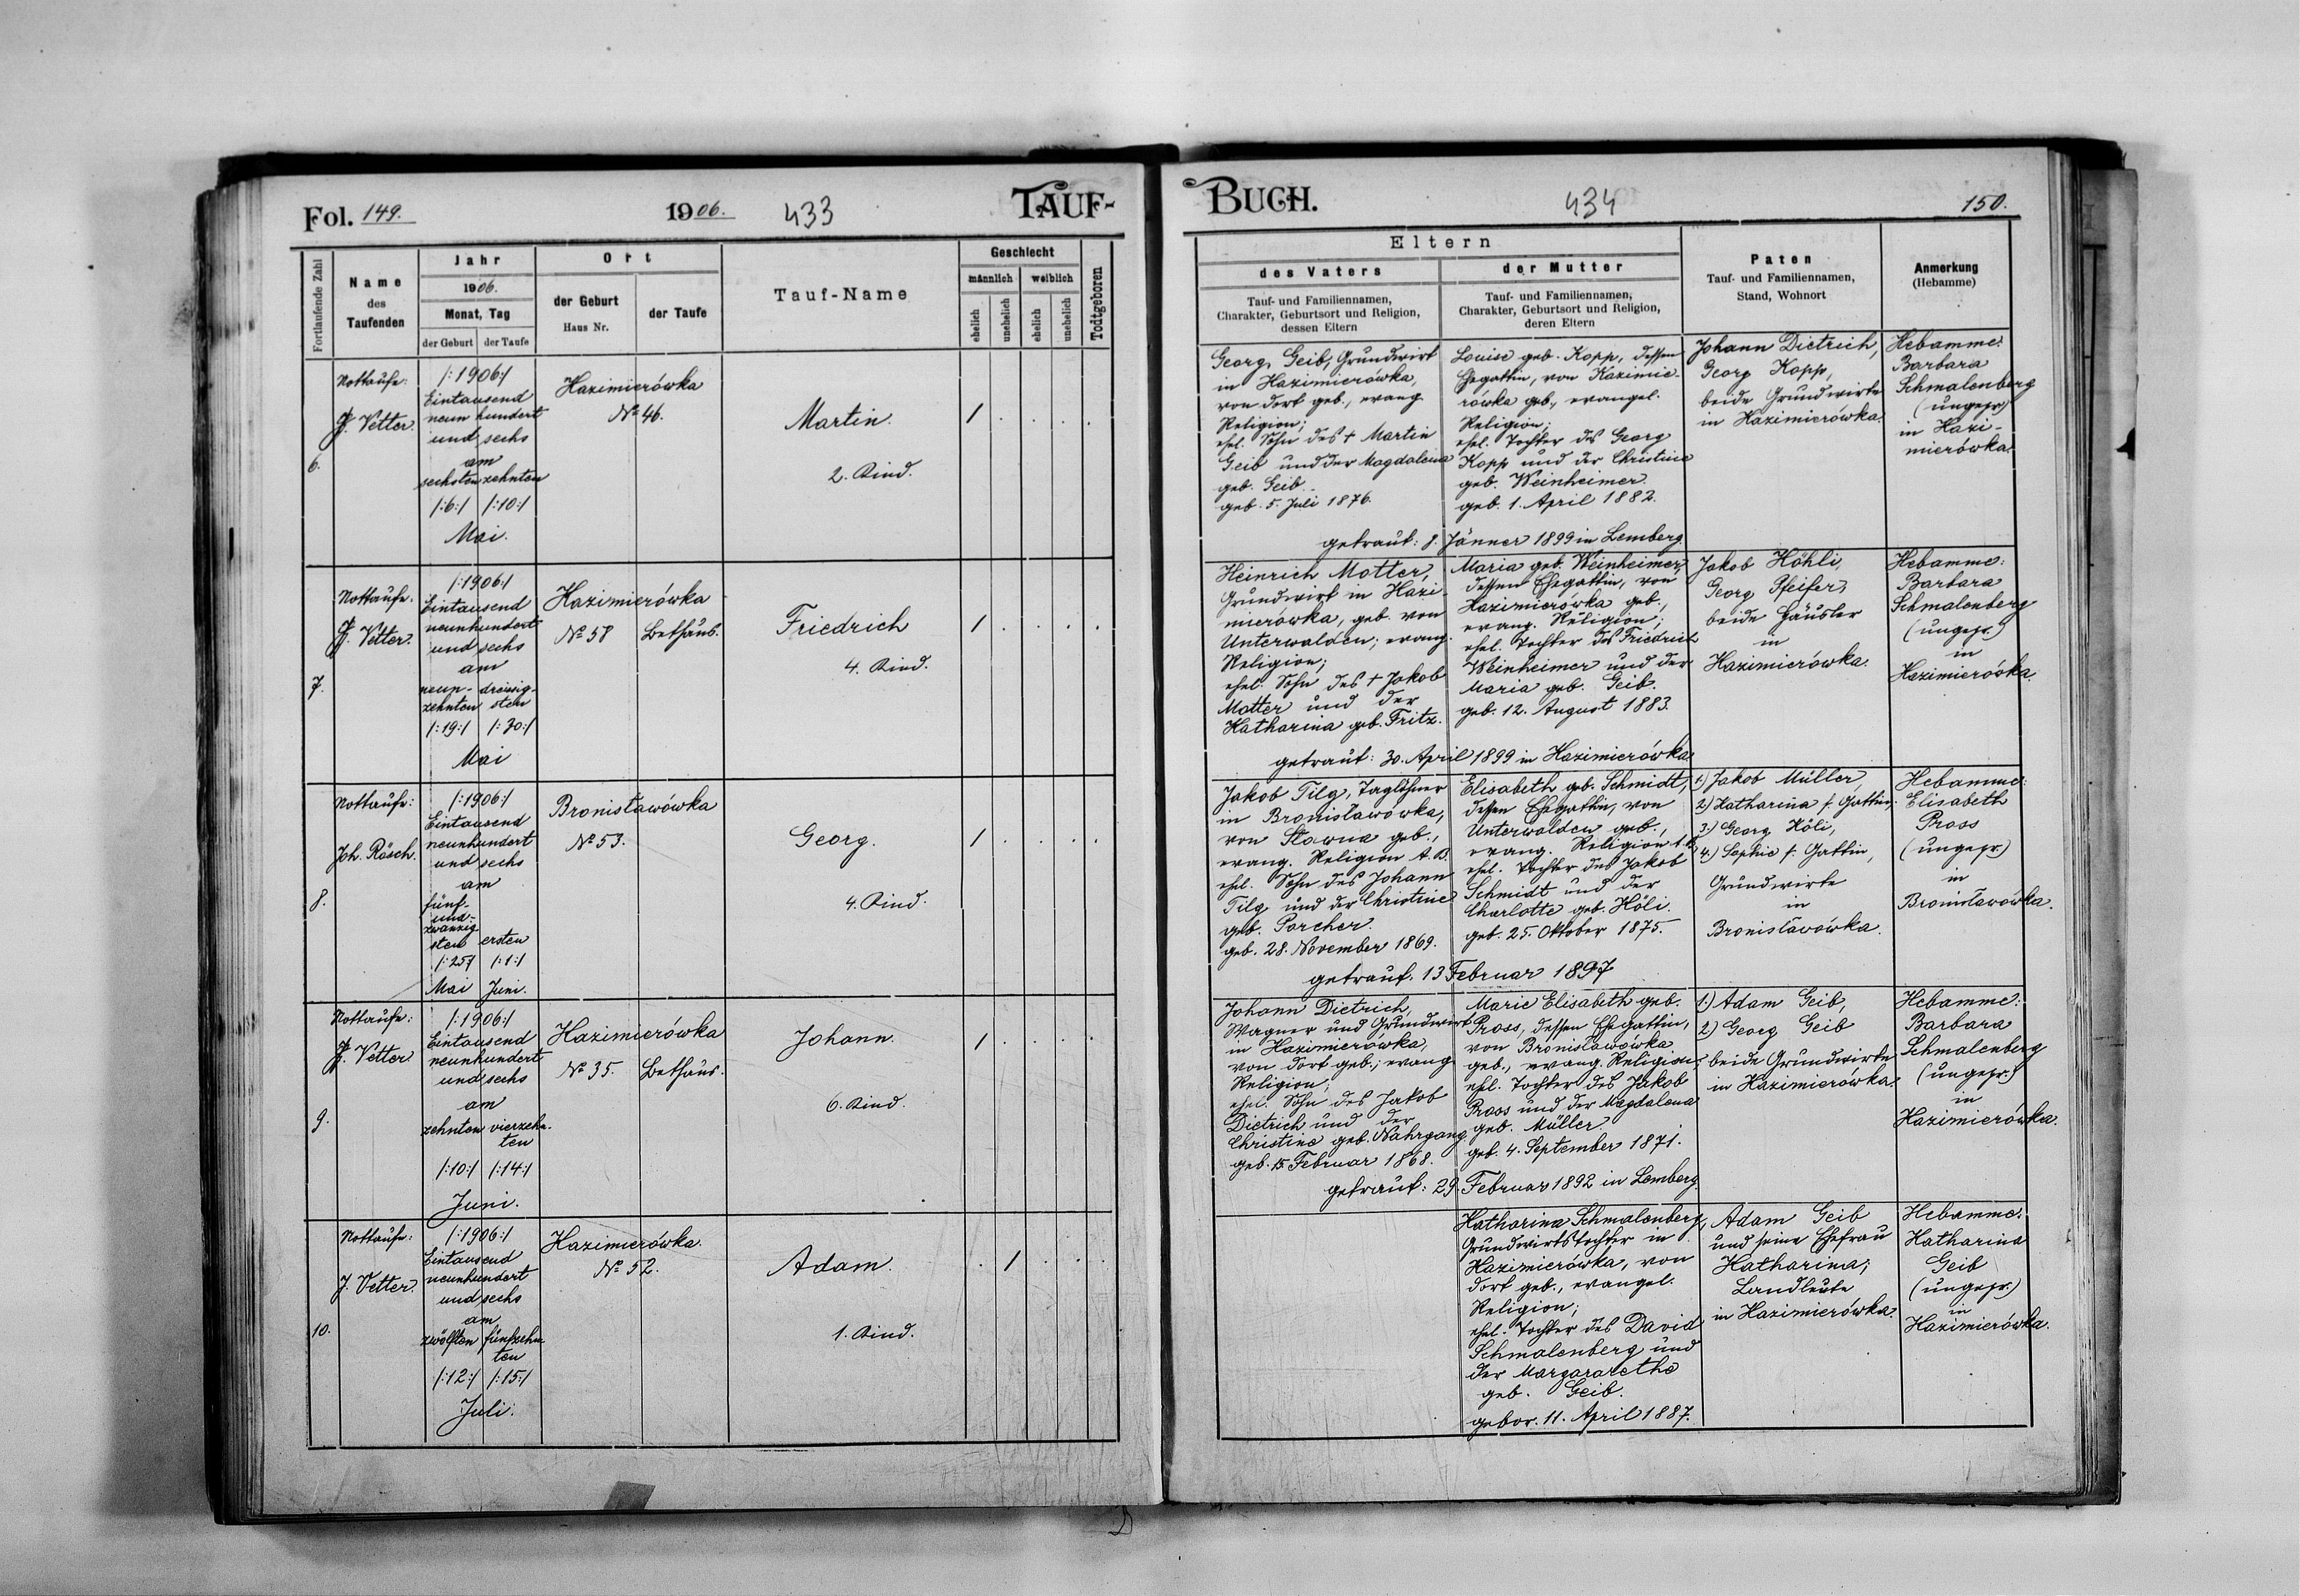 Fol. 149.
1906.
433
TAUF-
Fortlaufende Zahl
Name
des
Taufenden
Jahr
1906.
Monat, Tag
der Geburt
der Taufe
Ort
der Geburt
Haus Nr.
der Taufe
Tauf-Name
Geschlecht
männlich
weiblich
ehelich
unehelich
ehelich
unehelich
Todtgeboren
6.
Nottaufe:
J. Vetter.
/:1906:/
Eintausend
neun hundert
und sechs
am
sechsten zehnten
/:6:/ /:10:/
Mai.
Kazimierówka
No 46.
Martin.
2. Kind.
1 . . . .
7.
Nottaufe.
J. Vetter.
/:1906:/
Eintausend
neunhundert
und sechs
am
neun- dreissig-
zehnten sten
/:19:/ /:30:/
Mai
Kazimierówka
No 58 Bethaus.
Friedrich
4. Kind.
1 . . . .
8.
Nottaufe:
Joh. Rösch.
/:1906:/
Eintausend
neunhundert
und sechs
am
fünf-
und-
zwanzig
sten ersten
/:25:/ /:1:/
Mai Juni.
Bronisławówka
No 53.
Georg.
4. Kind.
1 . . . .
9.
Nottaufe:
J. Vetter
/:1906:/
Eintausend
neunhundert
und sechs
am
zehnten vierzehn-
ten
/:10:/ /:14:/
Juni.
Kazimierówka
No 35. Bethaus.
Johann.
6. Kind.
1 . . . .
10.
Nottaufe:
J. Vetter.
/:1906:/
Eintausend
neunhundert
und sechs
am
zwölften fünfzehn-
ten
/:12:/ /:15:/
Juli.
Kazimierówka.
No 52.
Adam.
1. Kind.
. 1 . . .
BUCH.
434
150.
Eltern
des Vaters
Tauf- und Familiennamen,
Charakter, Geburtsort und Religion,
dessen Eltern
der Mutter
Tauf- und Familiennamen,
Charakter, Geburtsort und Religion,
deren Eltern
Paten
Tauf- und Familiennamen,
Stand, Wohnort
Anmerkung
(Hebamme)
Georg Geib, Grundwirt
in Kazimierówka,
von dort geb., evang.
Religion;
ehel. Sohn des † Martin
Geib und der Magdalena
geb. Geib.
geb. 5. Juli 1876.
Louise geb. Kopp, dessen
Ehegattin, von Kazimie-
rówka geb., evangel.
Religion;
ehel. Tochter des Georg
Kopp und der Christine
geb. Weinheimer.
geb. 1. April 1882.
getraut: 8. Jänner 1899 in Lemberg.
Johann Dietrich,
Georg Kopp,
beide Grundwirte
in Kazimierówka.
Hebamme:
Barbara
Schmalenberg
(ungepr.)
in Kazi-
mierówka.
Heinrich Motter,
Grundwirt in Kazi-
mierówka, geb. von
Unterwalden; evang.
Religion;
ehel. Sohn des † Jakob
Motter und der
Katharina geb. Fritz.
Maria geb. Weinheimer,
dessen Ehegattin, von
Kazimierówka geb.,
evang. Religion;
ehel. Tochter des Friedrich
Weinheimer und der
Maria geb. Geib.
geb. 12. August 1883.
getraut: 30. April 1899 in Kazimierówka.
Jakob Höhli,
Georg Pfeifer,
beide Häusler
in
Kazimierówka.
Hebamme:
Barbara
Schmalenberg
(ungepr.)
in
Kazimierówka.
Jakob Tilg, Taglöhner
in Bronisławówka,
von Stawna geb.,
evang. Religion A. B.
ehel. Sohn des Johann
Tilg und der Christine
geb. Porcher.
geb. 28. November 1869.
Elisabeth geb. Schmidt,
dessen Ehegattin, von
Unterwalden geb.,
evang. Religion A. B.
ehel. Tochter des Jakob
Schmidt und der
Charlotte geb. Höli.
geb. 25. Oktober 1875.
getraut. 13 Februar 1897
1.) Jakob Müller,
2.) Katharina s. Gattin;
3.) Georg Höli,
4.) Sophie s. Gattin,
Grundwirte
in
Bronisławówka.
Hebamme:
Elisabeth
Pross
(ungepr.)
in
Bronisławówka.
Johann Dietrich,
Wagner und Grundwirt
in Kazimierówka,
von dort geb.; evang
Religion;
ehel. Sohn des Jakob
Dietrich und der
Christine geb. Nahrgang
geb. 15. Februar 1868.
Marie Elisabeth geb.
Pross, dessen Ehegattin,
von Bronisławówka
geb., evang. Religion;
ehl. Tochter des Jakob
Pross und der Magdalena
geb. Müller.
geb. 4. September 1871.
getraut: 29. Februar 1892 in Lemberg.
1.) Adam Geib,
2.) Georg Geib
beide Grundwirte
in Kazimierówka.
Hebamme:
Barbara
Schmalenberg
(ungepr.)
in
Kazimierówka.
Katharina Schmalenberg,
Grundwirtstochter in
Kazimierówka, von
dort geb., evangel.
Religion;
ehel. Tochter des David
Schmalenberg und
der Margararethe
geb. Geib.
gebor. 11. April 1887.
Adam Geib
und seine Ehefrau
Katharina;
Landleute
in Kazimierówka.
Hebamme:
Katharina
Geib
(ungepr.)
in
Kazimierówka.